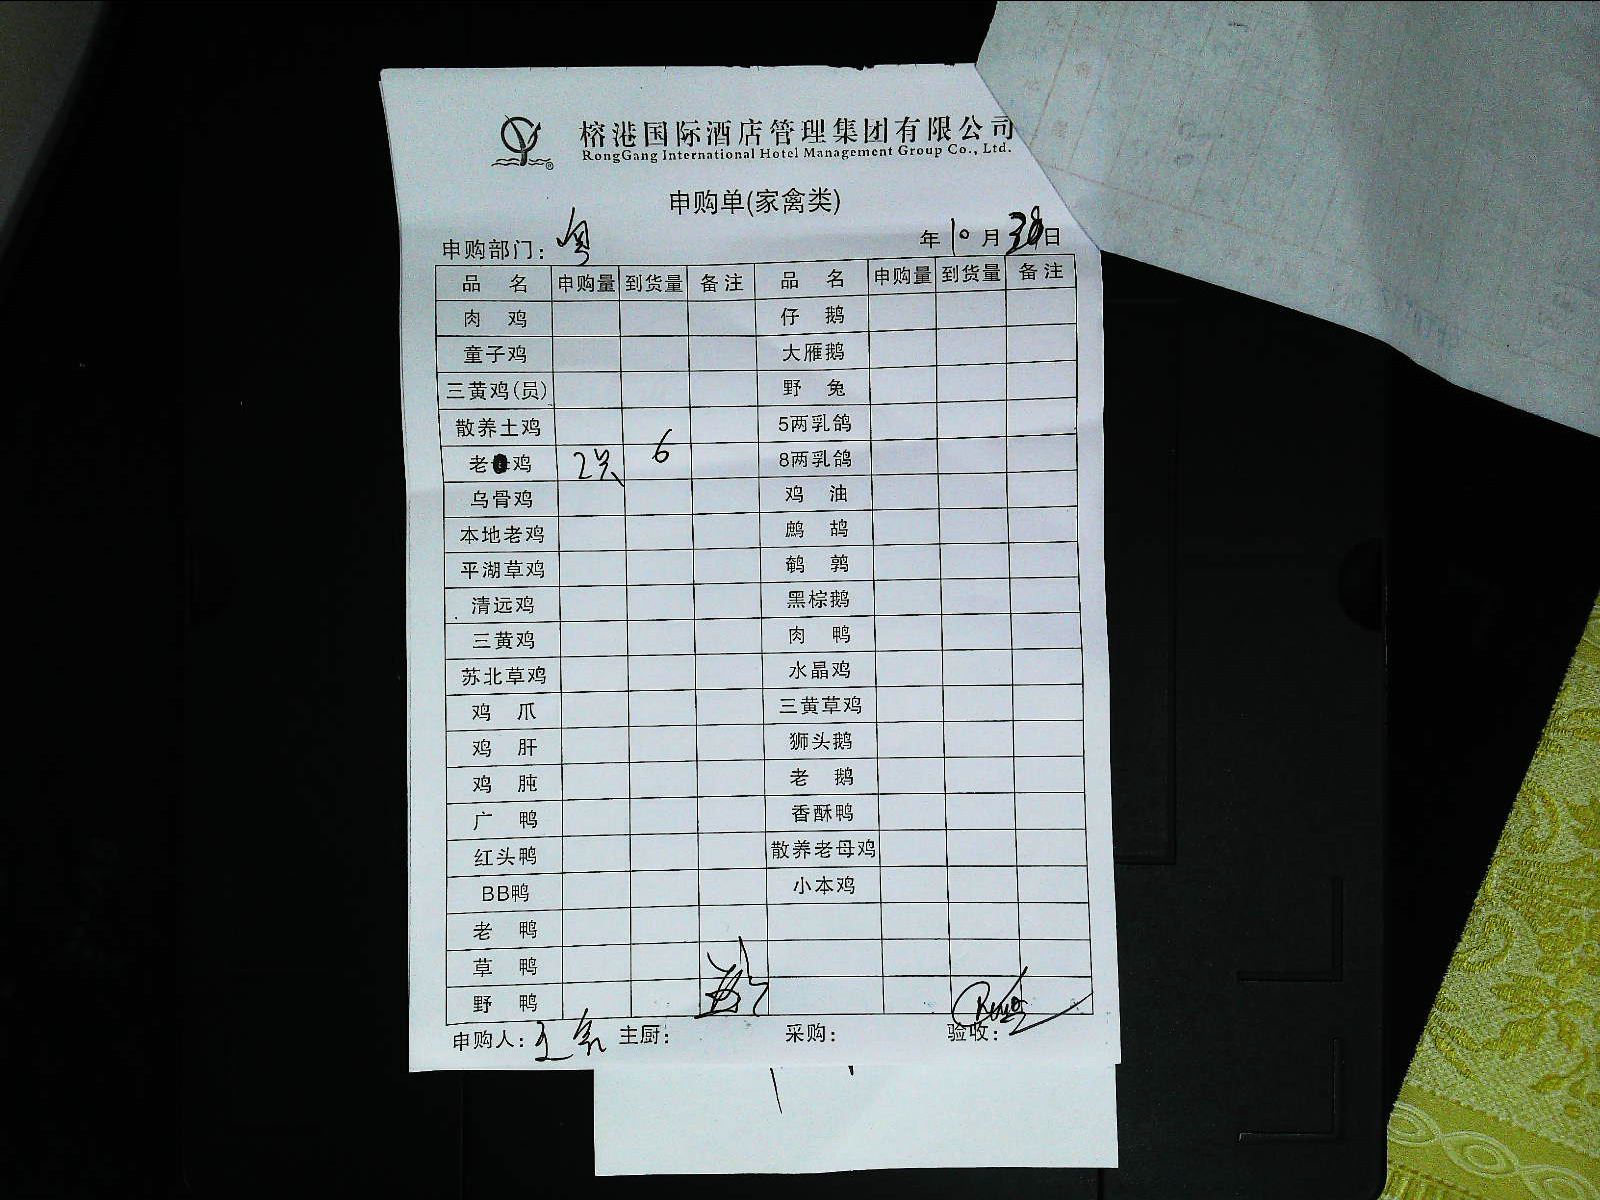 榕港国际酒店管理集团有限公司
RongGang International Hotel Management Group Co., Ltd.
®
申购单(家禽类)
申购部门: 粤 年 10 月 30 日
品 名 申购量 到货量 备注 品 名 申购量 到货量 备注
肉 鸡 仔 鹅
童子鸡 大雁鹅
三黄鸡(员) 野 兔
散养土鸡 5两乳鸽
老 鸡 2只 6 8两乳鸽
乌骨鸡 鸡 油
本地老鸡 鹧 鸪
平湖草鸡 鹌 鹑
清远鸡 黑棕鹅
三黄鸡 肉 鸭
苏北草鸡 水晶鸡
鸡 爪 三黄草鸡
鸡 肝 狮头鹅
鸡 肫 老 鹅
广 鸭 香酥鸭
红头鸭 散养老母鸡
BB鸭 小本鸡
老 鸭
草 鸭
野 鸭
申购人: 主厨: 采购: 验收: